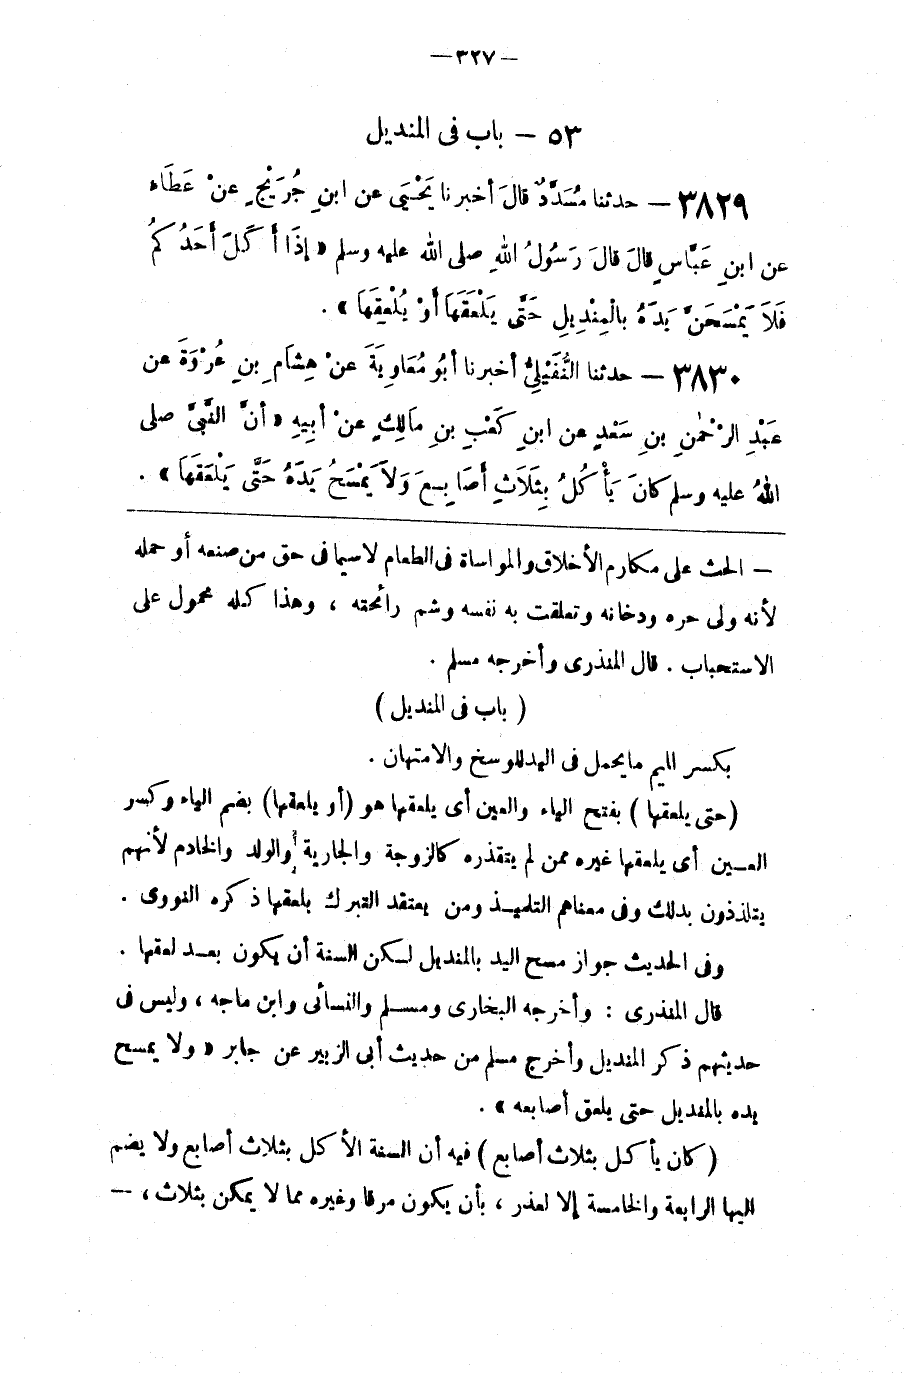 — ٣٢٧ —
٥٣ — باب فى المنديل
٣٨٢٩ — حدثنا مُسَدَّدٌ قالَ أخبرنا يَحْيَى عن ابنِ جُرَيْجٍ عنْ عَطَاء
عن ابنِ عَبَّاسٍ قالَ قالَ رَسُولُ اللهِ صلى الله عليه وسلم « إذَا أَكَلَ أَحَدُكُم
فَلاَ يَمْسَحَنَّ يَدَهُ بالْمِنْدِيلِ حَتَّى يَلْعَقَهَا أَوْ يُلْعِقَهَا » .
٣٨٣٠ — حدثنا النُّفَيْلِىُّ أخبرنا أبُو مُعَاوِيَةَ عنْ هِشَامِ بنِ عُرْوَةَ عن
عَبْدِ الرَّحْمٰنِ بنِ سَعْدٍ عن ابنِ كَعْبِ بنِ مَالِكٍ عنْ أبِيهِ « أنَّ النَّبىَّ صلى
اللهُ عليه وسلم كانَ يَأْكُلُ بِثَلَاثِ أَصَابِعَ وَلاَ يَمْسَحُ يَدَهُ حَتَّى يَلْعَقَهَا » .
— الحث على مكارم الأخلاق والمواساة فى الطعام لاسيما فى حق من صنعه أو حمله
لأنه ولى حره ودخانه وتعلقت به نفسه وشم رائحته ، وهذا كله محمول على
الاستحباب . قال المنذرى وأخرجه مسلم .
( باب فى المنديل )
بكسر الميم مايحمل فى اليد للوسخ والامتهان .
(حتى يلعقها ) بفتح الياء والعين أى يلعقها هو (أو يلعقها) بضم الياء وكسر
العين أى يلعقها غيره ممن لم يتقذره كالزوجة والجارية والولد والخادم لأنهم
يتلذذون بدلك وفى معناهم التلميذ ومن يعتقد التبرك بلعقها ذكره النووى .
وفى الحديث جواز مسح اليد بالمنديل لكن السنة أن يكون بعد لعقها .
قال المنذرى : وأخرجه البخارى ومسلم والنسائى وابن ماجه ، وليس فى
حديثهم ذكر المنديل وأخرج مسلم من حديث أبى الزبير عن جابر « ولا يمسح
يده بالمنديل حتى يلعق أصابعه » .
(كان يأكل بثلاث أصابع ) فيه أن السنة الأكل بثلاث أصابع ولا يضم
اليها الرابعة والخامسة إلا لعذر ، بأن يكون مرقا وغيره مما لا يمكن بثلاث ، —